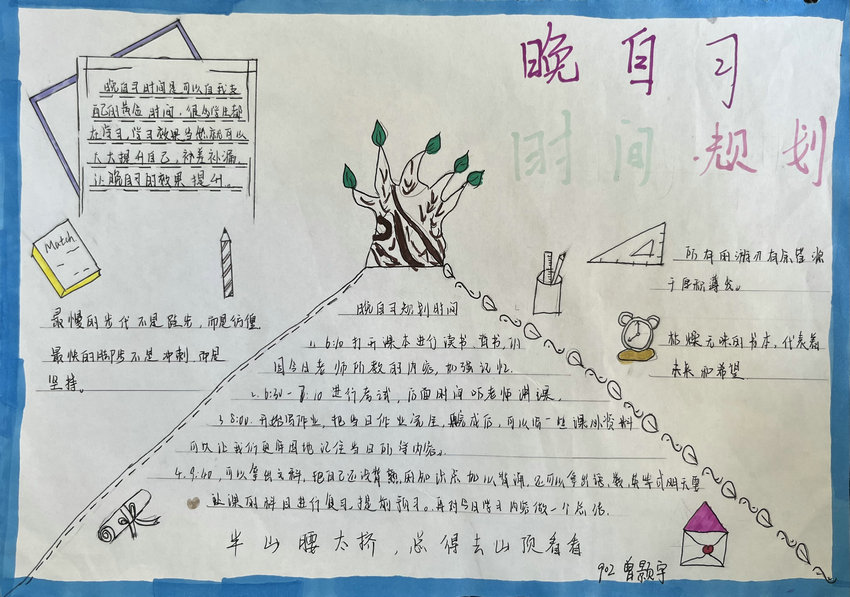 晚自习
时间规划
晚自习时间是可以自我支
配的黄金时间，很多学生都
在学习，学习效果当然就可以
大大提升自己，补差补漏，
让晚自习的效果提升。
Match
最慢的步伐不是跬步，而是徘徊
最快的脚步不是冲刺，而是
坚持。
4
所有的游刃有余皆源
于自标遵长。
枯燥无味的书本，代表着
未来和希望
晚自习规划时间
1. 6:10 打开课本进行读书，背书，巩
固今日老师所教的内容，加强记忆．
2. 6:30-8:10 进行考试，后面时间听老师讲课．
3. 8:00 开始写作业，把当日作业完成后，可以写一些课外资料
可以让我们更牢固地记住当日所学内容。
4. 9:00，可以拿出文科，把自己还没背熟的知识点加以背诵，还可以拿出
课的科目进行复习，提前预习。再对今日学习内容做一个总结．
半山腰太挤，总得去山顶看看
902 曾颢宇